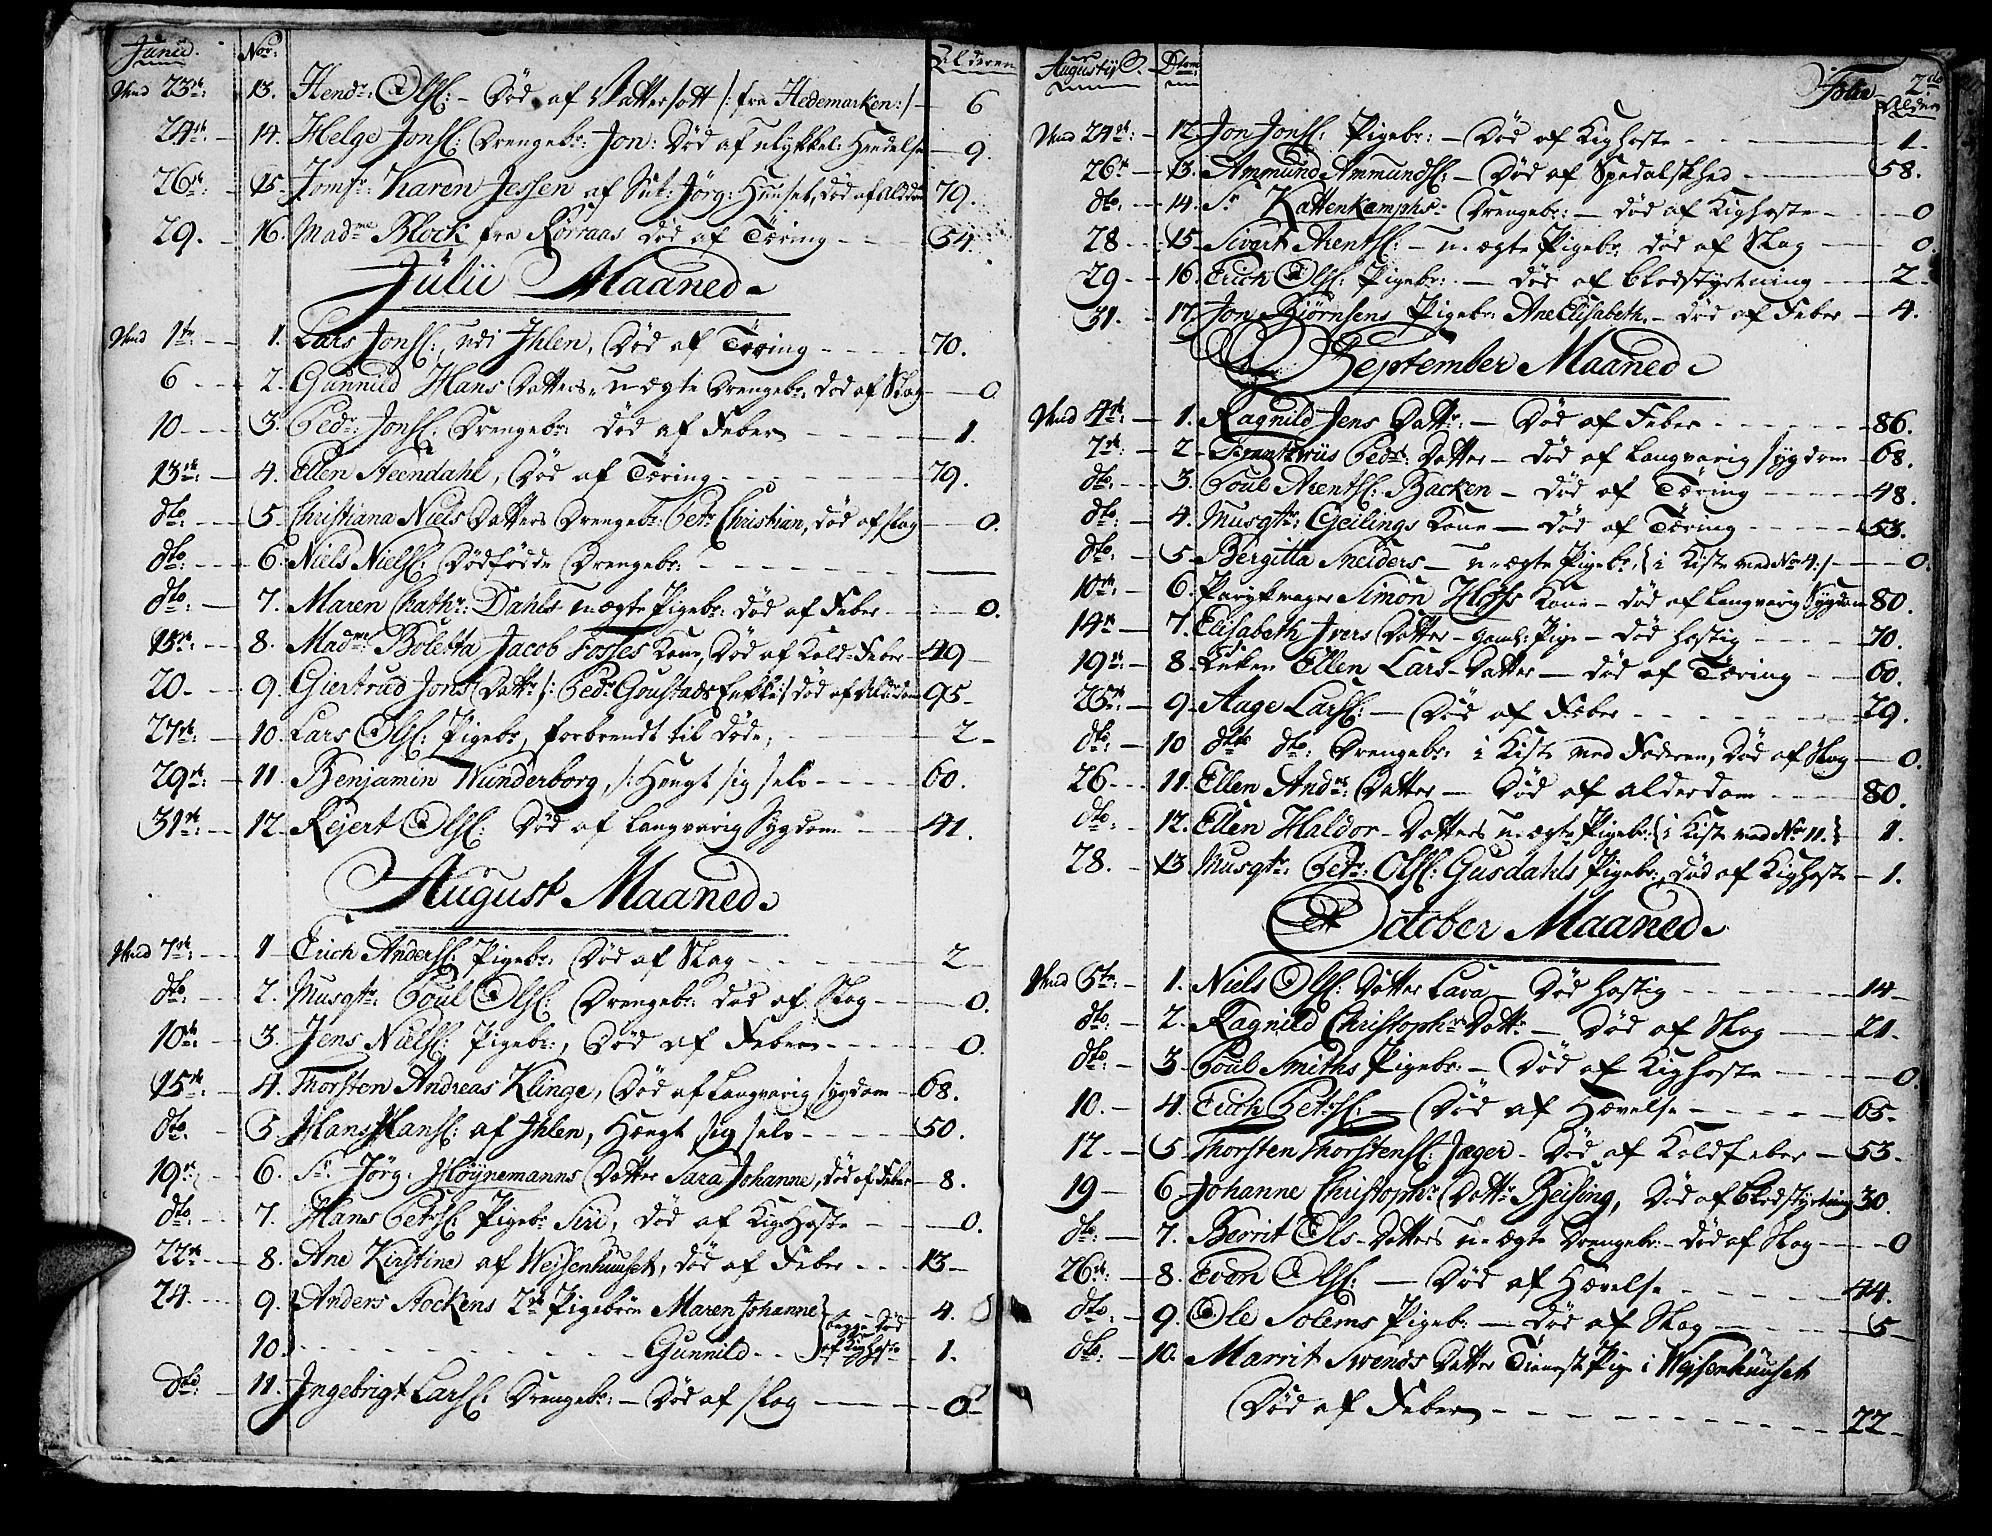 Junii. Nor: Alderen
Den 23de: 13. Hendr: Olss: - Død af Vattersott /: fra Hedemarken :/ - 6
24de: - 14. Helge Jonss: Drengebr: Jon: Død af ulykkel: Hendelse - 9.
26de: - 15. Jomfr: Karen Jessen af Sut: Jörg: Huuset, død af Alderd 79.
29. - 16. Madme Block fra Rörraas død af Tæring - - 54.
Julii Maaned.
Den 1te: - 1. Lars Jonss:, udi Ihlen, Død af Tæring - - - - 70.
6 - - - 2. Gunnild Hans Datters, uægte Drengebr: død af Slag - 0
10 - - - 3. Pedr: Jonss: Drengebr: død af Feber - - - 1.
13de: - 4. Ellen Steendahl, Død af Tæring - - - - 79.
dto: - - - 5. Christiana Niels Datters Drengebr: Petr Christian, død af slag - 0.
dto: - - - 6. Niels Nielss: Dödfödde Drengebr: - - - - -
dto: - 7. Maren Cathr: Dahls uægte Pigebr: død af Feber - - - 0.
15de: - 8. Madme Boletta Jacob Fostes Kone, Død af Kold-Feber 49 -
20 - - - 9. Giertrud Jons Dattr /: Pedr Goustads Enke :/ død af Alderdom 95 -
27de: - 10. Lars Olss: Pigebr, forbrendt til døde, - - - 2 -
29de: - 11. Benjamin Wunderborg, /: Hengt sig selv - - - 60.
31de: - 12. Rejert Olss: Død af langvarig Sygdom - - - 41.
August Maaned.
Den 7de: - - 1 - Erich Anderss: Pigebr: Død af Slag - - - - 2 -
dto: - - - 2. Musqtr: Poul Olss: Drengebr: død af Slag - - - 0.
10de: - - 3. Jens Nielss: Pigebr:, Død af Feber - - - - 0.
15de - - 4. Thorsten Andreas Klinge, Død af Langvarig sygdom - 68.
dto: - - 5. Hans Hanss: af Ihlen, Hængt sig selv - - - - 50.
19de - - 6. Sr Jörg: Höynemanns Datter Sara Johanne, død af Feber - 8.
dto: - - 7. Hans Petrss: Pigebr Siri, død af KigHoste - - - 0.
22de - - 8. Ane Kirstine af Weisenhuuset, død af Feber - - - 13 -
24. - - - 9. Anders Stockens 2de Pigebørn Maren Johanne } begge død - 4.
10. - - - - - - - - - Gunnild - - } af Kighoste - 1.
dto: - - 11. Ingebrigt Larss: Drengebr: - Død af slag - - - 0 -
Augustij Dtom: Folio 2do Alder
Den 24de: - 12. Jon Jonss: Pigebr: - Død af Kighoste - - - - 1.
26de - 13. Ammund Ammundss: - Død af Spedalskhed - - - 58.
dto: - - 14. Sr Kattenkamphs - Drengebr: - død af Kighoste - - - 0
28 - - - 15. Sivert Arentss: - u-ægte Pigebr: død af Slag - - - 0.
29 - - 16. Erich Olss: Pigebr: - død af blodstyrtning - - - 2 -
31. - - 17. Jon Björnsens Pigebr: Ane Elisabeth. - død af Feber - 4.
September Maaned.
Den 4de: - 1. Ragnild Jens Dattr: - Død af Feber - - - - - 86.
7de: - 2 - Pedr: Datter - død af langvarig sygdom - 68.
dto: - - 3. Poul Arentss: Backen - død af Tæring - - - - 48.
dto: - 4. Musqtr: Geilings Kone - død af Tæring - - - - 53.
dto: - - 5 - Bergitta Sneiders - u-ægte Pigebr: { i Kiste med No 4 :/ - - 0.
10de - 6. Simon Hoffs Kone - død af langvarig Sygdom 80.
14de - 7. Elisabeth Ivers Datter - gaml: Pige - død hastig - - - 70.
19de: - 8. Enken Ellen Lars-Datter - død af Tæring - - 60.
25de: - 9 - Aage Larss: - Død af Feber - - - - 29.
dto: - 10 dto dto: Drengebr: i Kiste med Faderen, død af Slag - 0.
26 - - - 11. Ellen Andrs Datter - Død af alderdom - - - 80.
dto: - 12. Ellen Haldor-Datters u-ægte Pigebr: { i Kiste med No 11. } 1.
28. - 13 Musqtr: Petr: Olss: Gusdahls Pigebr:, død af Kighoste - 1.
October Maaned.
Den 5te: - 1. Niels Olss: Datter Lava - Død hastig - - - - 14 -
dto: - 2. Ragnild Christophrs Dattr - Død af Slag - - - 21 -
dto: - 3 - Poul Smiths Pigebr: - Død af Kighoste - - - 0.
10. - 4. Erich Petrss: - Død af Hævelse - - - - - 65 -
12 - - 5. Thorsten Thorstenss: Jæger - Död af Koldfeber - 53 -
19 - 6. Johanne Christophr: Dattr Beising, Död af blodstyrtning 30.
dto: - 7. Berrit Ols-Datters u-ægte Drengebr: - død af Slag - - - 0
26de: - 8. Even Olss: - Død af Hævelse - - - - - 44.
dto: - 9. Ole Solems Pigeb: - død af Slag - - - - 5 -
dto: - 10. Marrit Svends Datter Tieneste Pige i Weisenhuuset
Død af Feber - - - - - - - 22 -